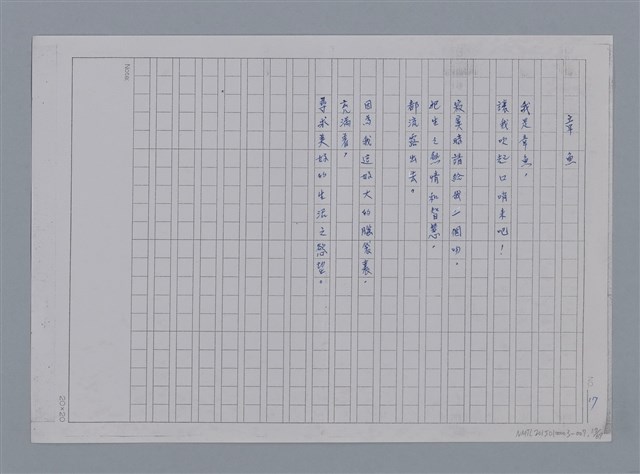 章魚
我是章魚，
讓我吹起口哨来吧！
寂寞時請給我一個吻，
把生之熱情和智慧，
都流露出去。
因為我這好大的腦袋裏，
充滿着，
尋求美好的生活之慾望。
No58
20×20
17